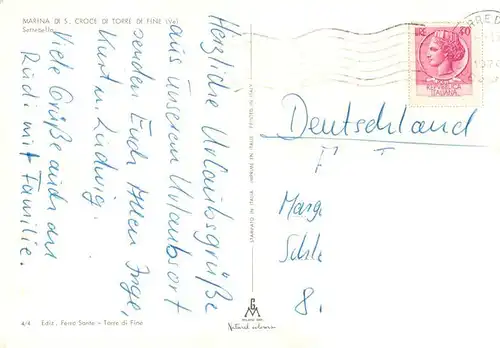 MARINA DI S. CROCE DI TORRE DI FINE (Ve)
Herzliche Urlaubsgrüße
aus unserem Urlaubsort
senden Euch Allen Inge,
Kurt u. Ludwig.
Viele Grüße auch an
Rudi mit Familie.
4/4 Ediz. Ferro Sante - Torre di Fine
STAMPATO IN ITALIA IMPRIMÉ EN ITALIE PRINTED IN ITALY
LIRE 40
REPVBBLICA
ITALIANA
Deutschland
Marg
Schle
8.